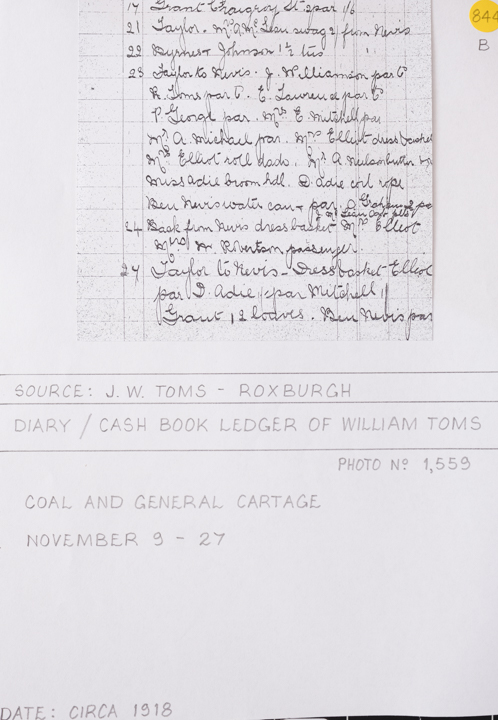 17 Grant St par 1/6
21 Taylor. from Nevis
22 Byrnes + Johnson 1½ tis
23 Taylor to Nevis. J. Williamson par
R. Toms par E. Lawrence par
P. George par. Mrs E. Mitchell par
Mrs A. Michael par. Mrs Elliot dress basket
Mrs Elliot roll dado. Mrs A
Miss Adie broom hdl. D. Adie coil rope
Ben Nevis water can + par.
24 Back from Nevis dress basket Mrs Elliot
Mrs Robertson passenger
27 Taylor to Nevis - Dress basket Elliot
par D. Adie par Mitchell
Grant 12 loaves. Ben Nevis par
844
B
SOURCE: J. W. TOMS - ROXBURGH
DIARY / CASH BOOK LEDGER OF WILLIAM TOMS
PHOTO Nº 1,559
COAL AND GENERAL CARTAGE
NOVEMBER 9 - 27
DATE: CIRCA 1918